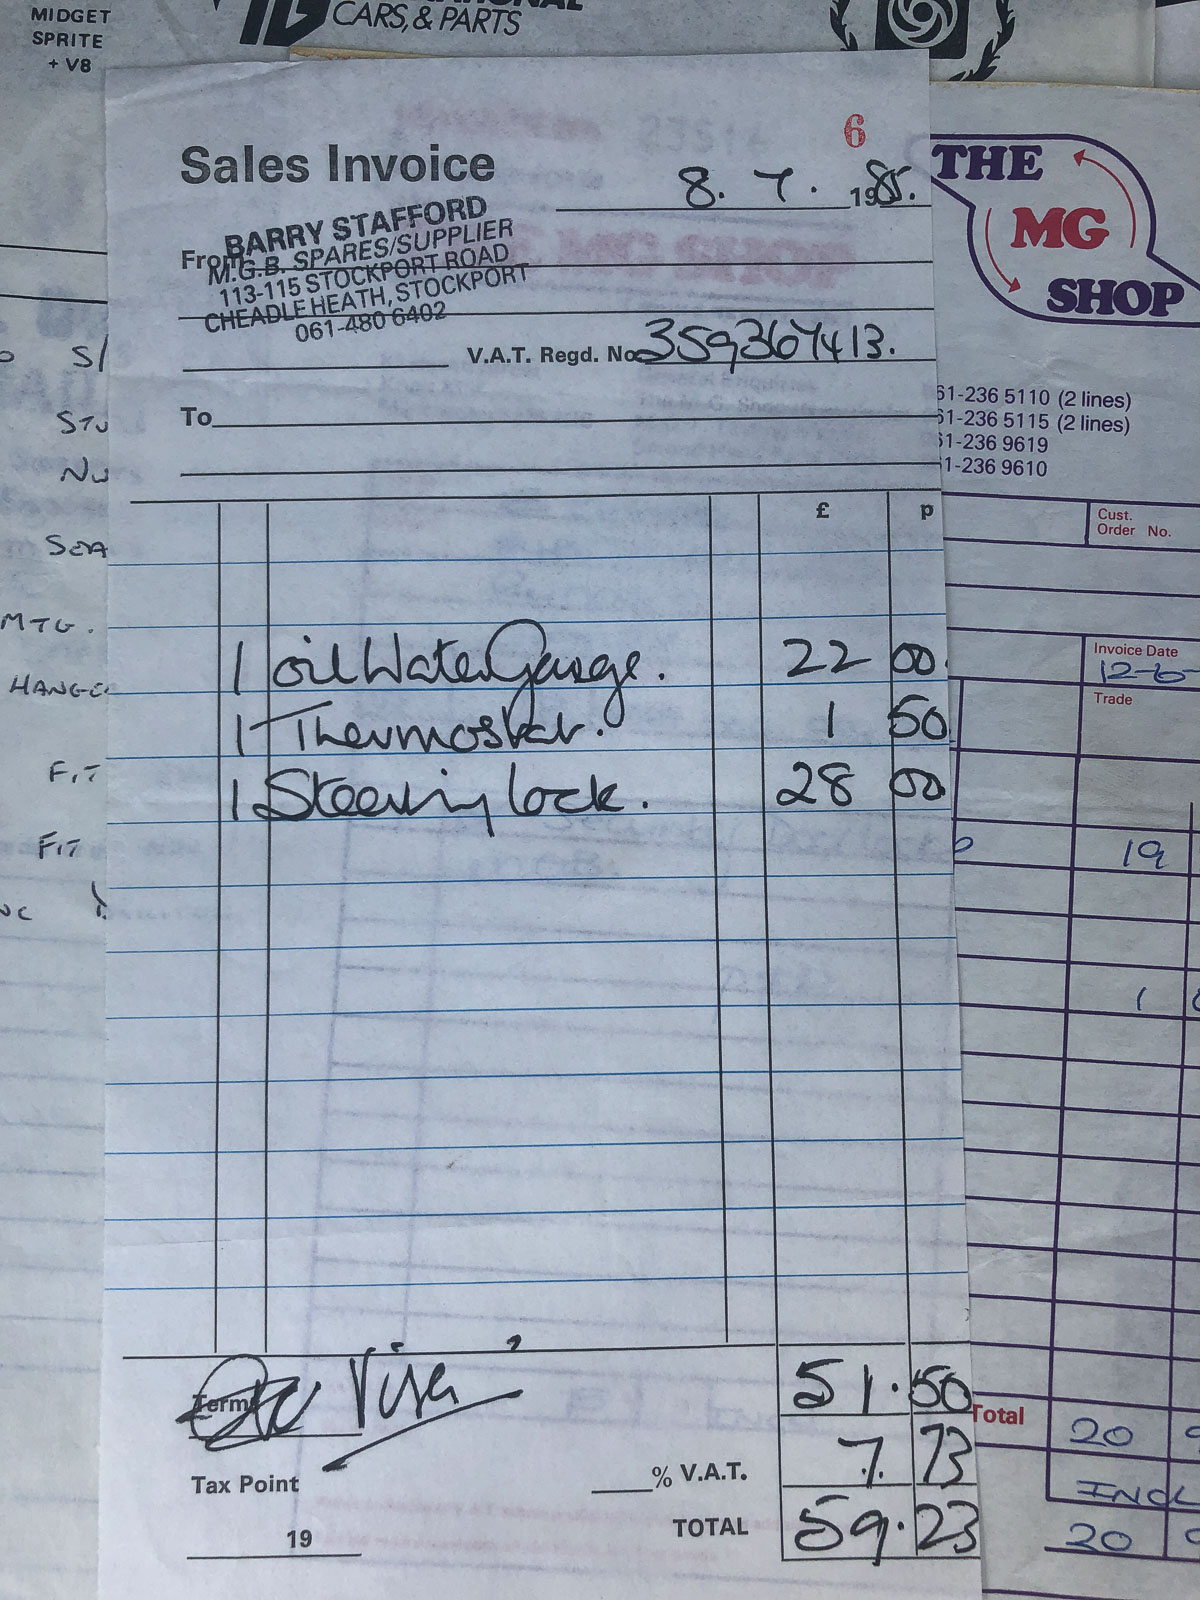 MIDGET
SPRITE
+ V8
CARS, & PARTS
6
Sales Invoice
8. 7. 1985.
From
BARRY STAFFORD
M.G.B. SPARES/SUPPLIER
113-115 STOCKPORT ROAD
CHEADLE HEATH, STOCKPORT
061-480 6402
V.A.T. Regd. No 359367413.
To
£ p
1 oil Water Gauge. 22 00
1 Thermostat. 1 50
1 Steering lock. 28 00
Terms Visa 51.50
Tax Point % V.A.T. 7.73
19 TOTAL 59.23
THE
MG
SHOP
61-236 5110 (2 lines)
61-236 5115 (2 lines)
61-236 9619
1-236 9610
Cust.
Order No.
Invoice Date
12-6-
Trade
19
1
Total 20
INCL
20
S/
MTG.
FIT
FIT